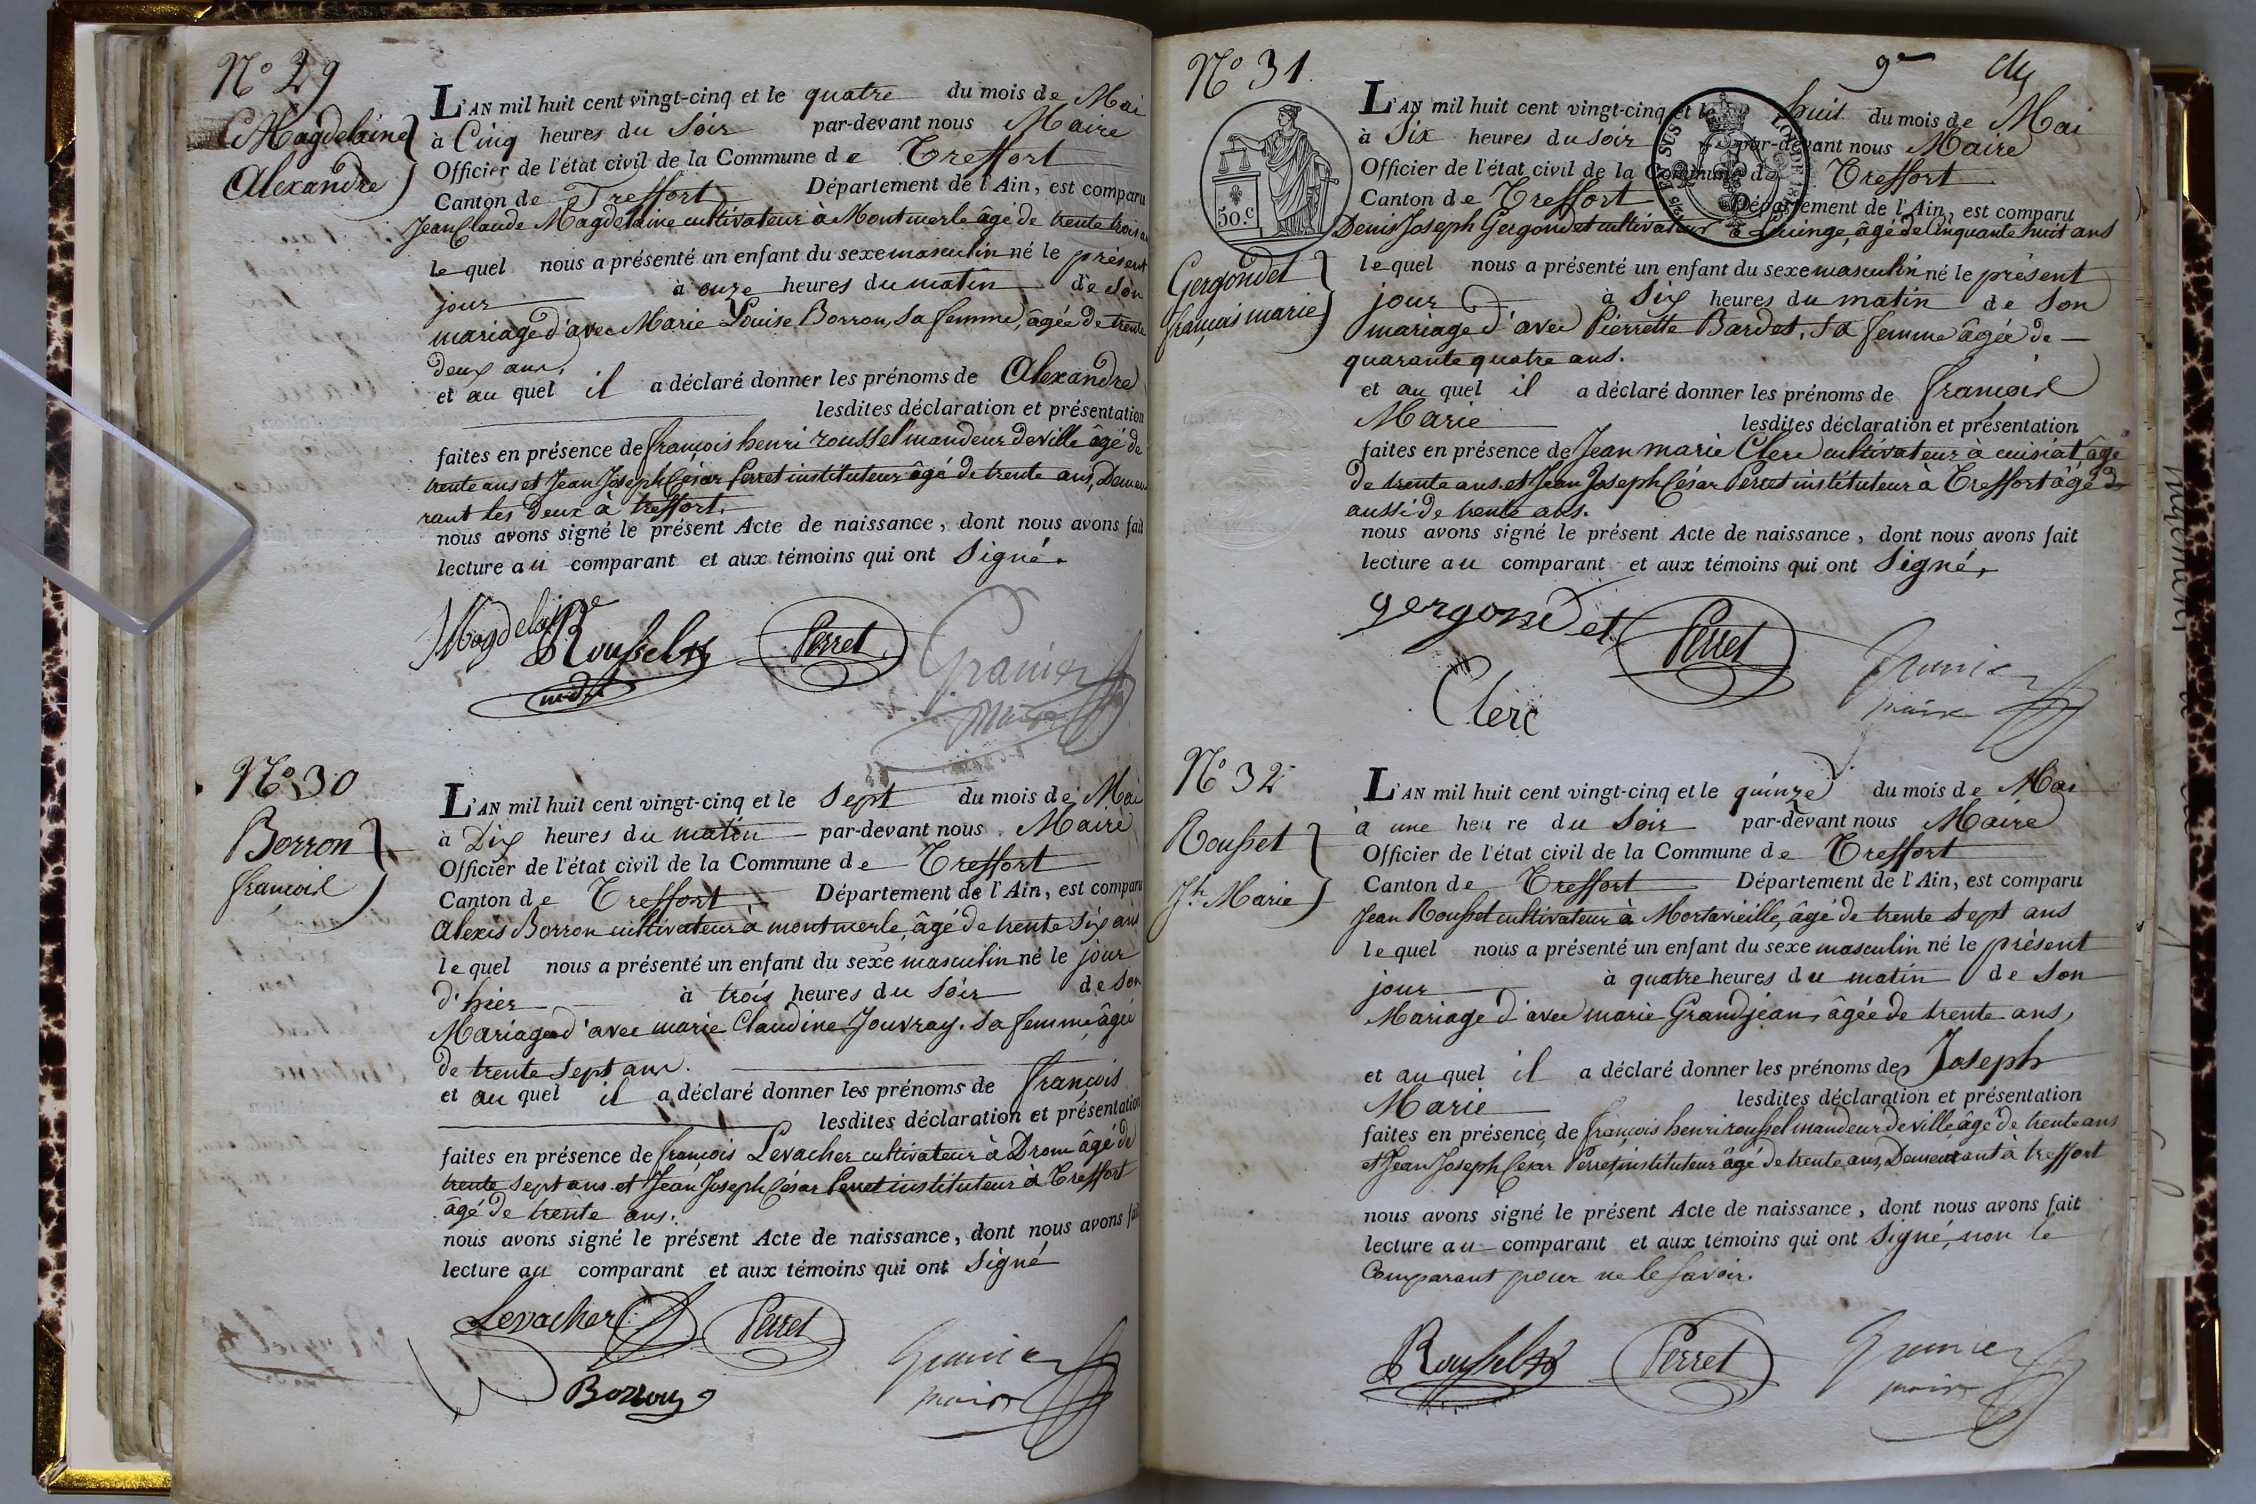 N° 29
Magdelaine
Alexandre
L'AN mil huit cent vingt-cinq et le quatre du mois de Mai
à Cinq heures du Soir par-devant nous Maire
Officier de l'état civil de la Commune de Treffort
Canton de Treffort Département de l'Ain, est comparu
Jean Claude Magdelaine cultivateur à Montmerle âgé de trente trois
lequel nous a présenté un enfant du sexe masculin né le présent
jour à onze heures du matin de son
mariage d'avec Marie Louise Borron, sa femme, âgée de trente
deux ans,
et au quel il a déclaré donner les prénoms de Alexandre
lesdites déclaration et présentation
faites en présence de françois henri roussel mandeur de ville âgé de
trente ans et Jean Joseph César Perret instituteur âgé de trente ans, Demeu
rant les deux à treffort.
nous avons signé le présent Acte de naissance, dont nous avons fait
lecture au comparant et aux témoins qui ont Signé.
Magdelaine
Roussel Perret Granier
maire
N° 30
Borron
françois
L'AN mil huit cent vingt-cinq et le sept du mois de Mai
à Dix heures du matin par-devant nous Maire
Officier de l'état civil de la Commune de Treffort
Canton de Treffort Département de l'Ain, est comparu
Alexis Borron cultivateur à montmerle, âgé de trente six ans
lequel nous a présenté un enfant du sexe masculin né le jour
d'hier à trois heures du Soir de son
Mariage d'avec marie Claudine Jouvray, sa femme, âgée
de trente sept ans.
et au quel il a déclaré donner les prénoms de françois
lesdites déclaration et présentation
faites en présence de françois Levacher cultivateur à Drom âgé de
trente sept ans et Jean Joseph César Perret instituteur à Treffort
âgé de trente ans.
nous avons signé le présent Acte de naissance, dont nous avons fait
lecture au comparant et aux témoins qui ont Signé
Levacher Perret Granier
Borron maire
9
N° 31
50 c.
Gergondet
françois marie
L'AN mil huit cent vingt-cinq et le huit du mois de Mai
à Six heures du soir par-devant nous Maire
Officier de l'état civil de la Commune de Treffort
Canton de Treffort Département de l'Ain, est comparu
Denis Joseph Gergondet cultivateur à Luinge, âgé de Cinquante huit ans
lequel nous a présenté un enfant du sexe masculin né le présent
jour à Six heures du matin de son
mariage d'avec Pierrette Bardet, sa femme âgée de
quarante quatre ans.
et au quel il a déclaré donner les prénoms de françois
Marie lesdites déclaration et présentation
faites en présence de Jean marie Clerc cultivateur à cuisiat âgé
de trente ans et Jean Joseph César Perret instituteur à Treffort âgé de
aussi de trente ans.
nous avons signé le présent Acte de naissance, dont nous avons fait
lecture au comparant et aux témoins qui ont Signé,
gergondet Perret Granier
Clerc maire
N° 32
Rousset
Jh. Marie
L'AN mil huit cent vingt-cinq et le quinze du mois de Mai
à une heure du Soir par-devant nous Maire
Officier de l'état civil de la Commune de Treffort
Canton de Treffort Département de l'Ain, est comparu
Jean Rousset cultivateur à Mortavieille, âgé de trente sept ans
lequel nous a présenté un enfant du sexe masculin né le présent
jour à quatre heures du matin de son
Mariage d'avec marie Grandjean, âgée de trente ans,
et au quel il a déclaré donner les prénoms de Joseph
Marie lesdites déclaration et présentation
faites en présence de françois henri roussel mandeur de ville âgé de trente ans
et Jean Joseph César Perret, instituteur âgé de trente ans, Demeurant à treffort
nous avons signé le présent Acte de naissance, dont nous avons fait
lecture au comparant et aux témoins qui ont Signé, non le
Comparant pour ne le savoir.
Roussel Perret Granier
maire